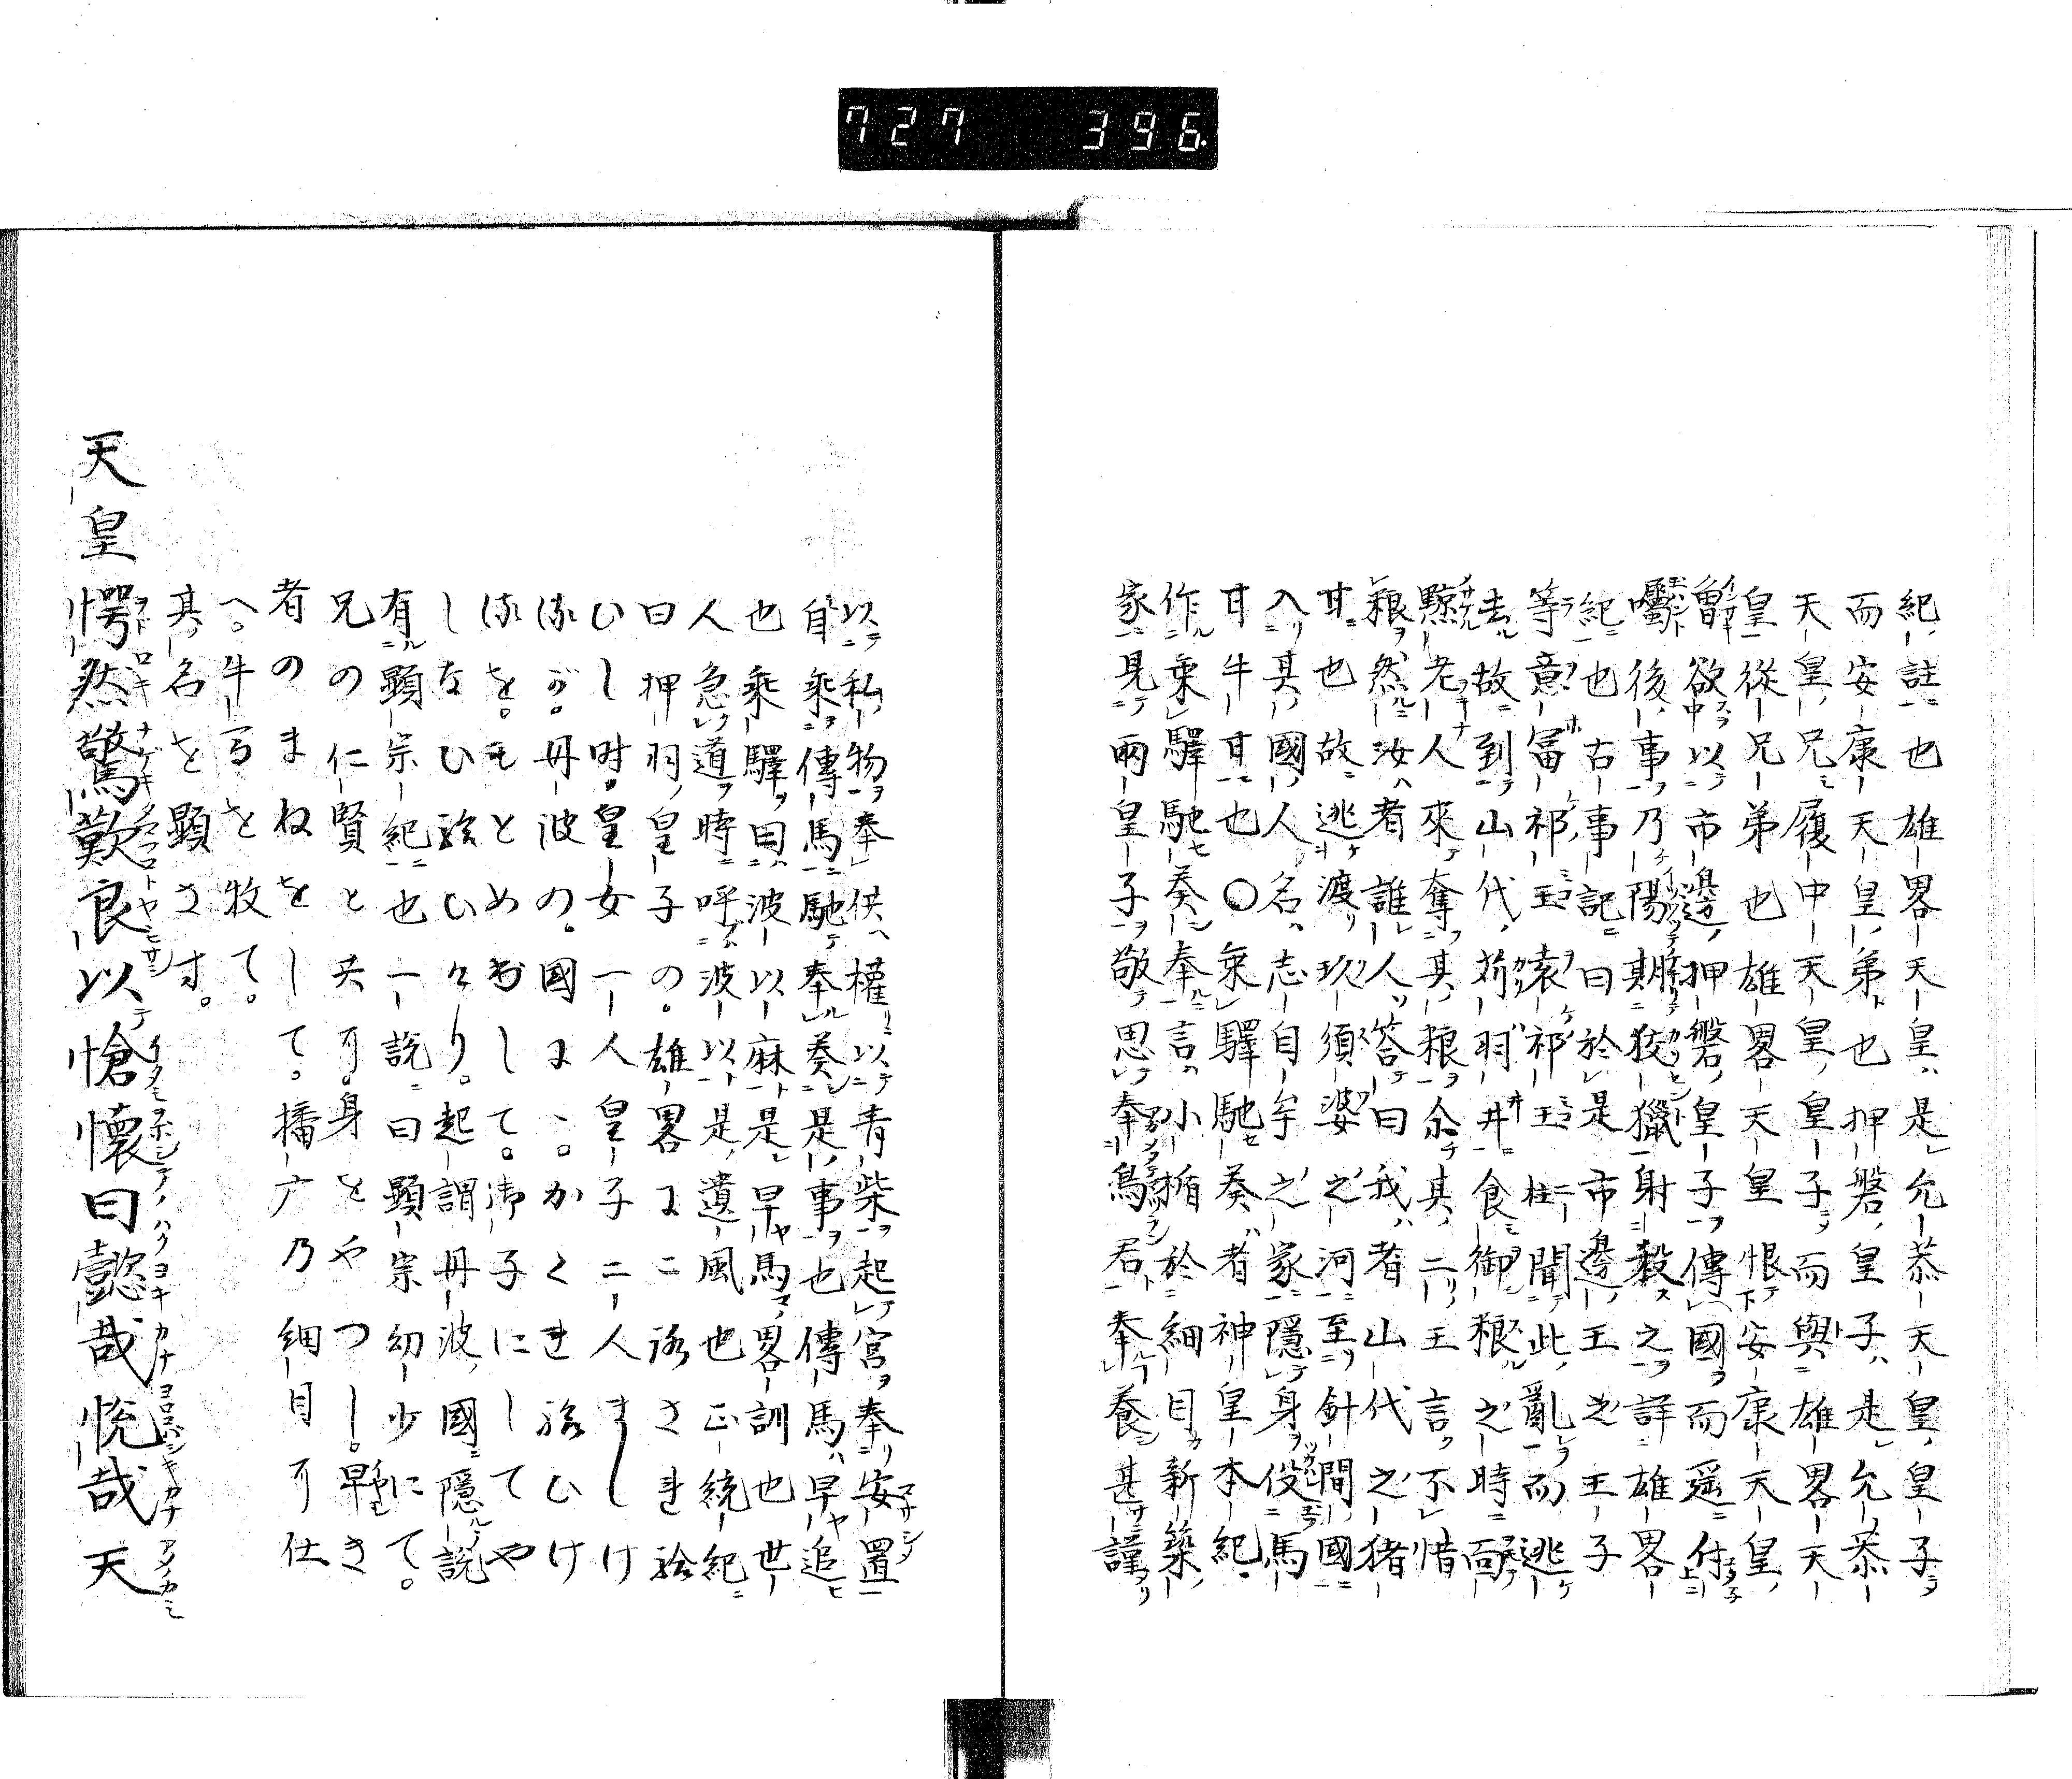 727 396.
紀註也雄畧天皇是允恭天皇皇子
而安康天皇弟也押磐皇子是允恭
天皇兄履中天皇皇子而與雄畧天
皇從兄弟也雄畧天皇恨安康天皇
曽欲以市邊押磐皇子傳國而遥付
囑後事乃陽期狡獵射殺之詳雄畧
紀也古事記曰於是市邊王之王子
等意冨祁王袁祁王二柱聞此亂而逃
去故到山代苅羽井食御粮之時面
黥老人來奪其粮尒其二王言不惜
粮然汝者誰人答曰我者山代之猪
甘也故逃渡玖須婆之河至針間國
入其國人名志自牟之家隱身役馬
甘牛甘也〇乗驛馳奏者神皇本紀
作乗驛馳奏奉言小楯於細目新築
家見兩皇子敬思奉為君奉養甚謹
以私物奉供權以青柴起宮奉安置
自乘傳馬馳奉奏是事也傳馬早追
也乘驛曰波以麻是早馬畧訓也世
人急道時呼波以是遺風也正統紀
曰押羽皇子の。雄畧にころされ給
ひし時。皇女一人皇子二人ましけ
るが。丹波の國に。かくれ給ひけ
るを。もとめ出して。御子にしてや
しなひ給ひけり。起謂丹波國隱説
有顯宗紀也一説曰顯宗幼少にて。
兄の仁賢と共可。身をやつし。早き
者のまねをして。播广乃細目可仕
へ。牛馬を牧て。
其名を顕さす。
天皇愕然驚歎良以愴懷曰懿哉悦哉天